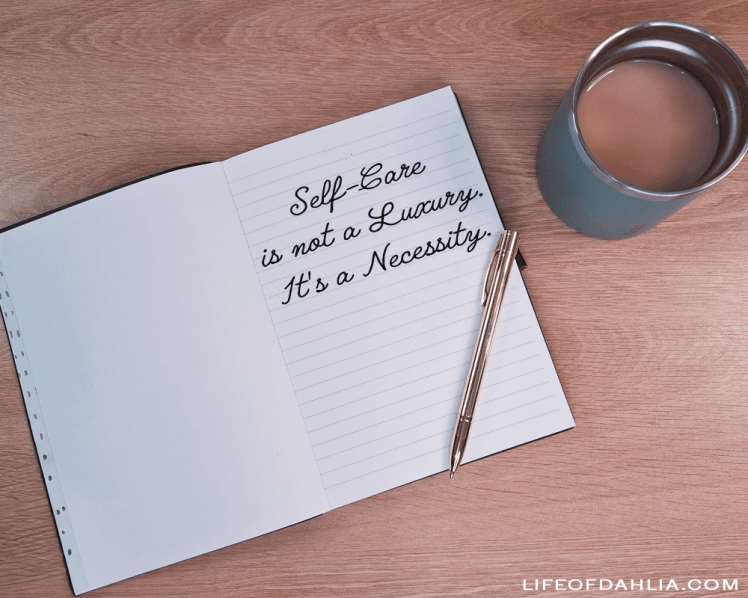 Self-Care
is not a Luxury.
It's a Necessity.
LIFEOFDAHLIA.COM